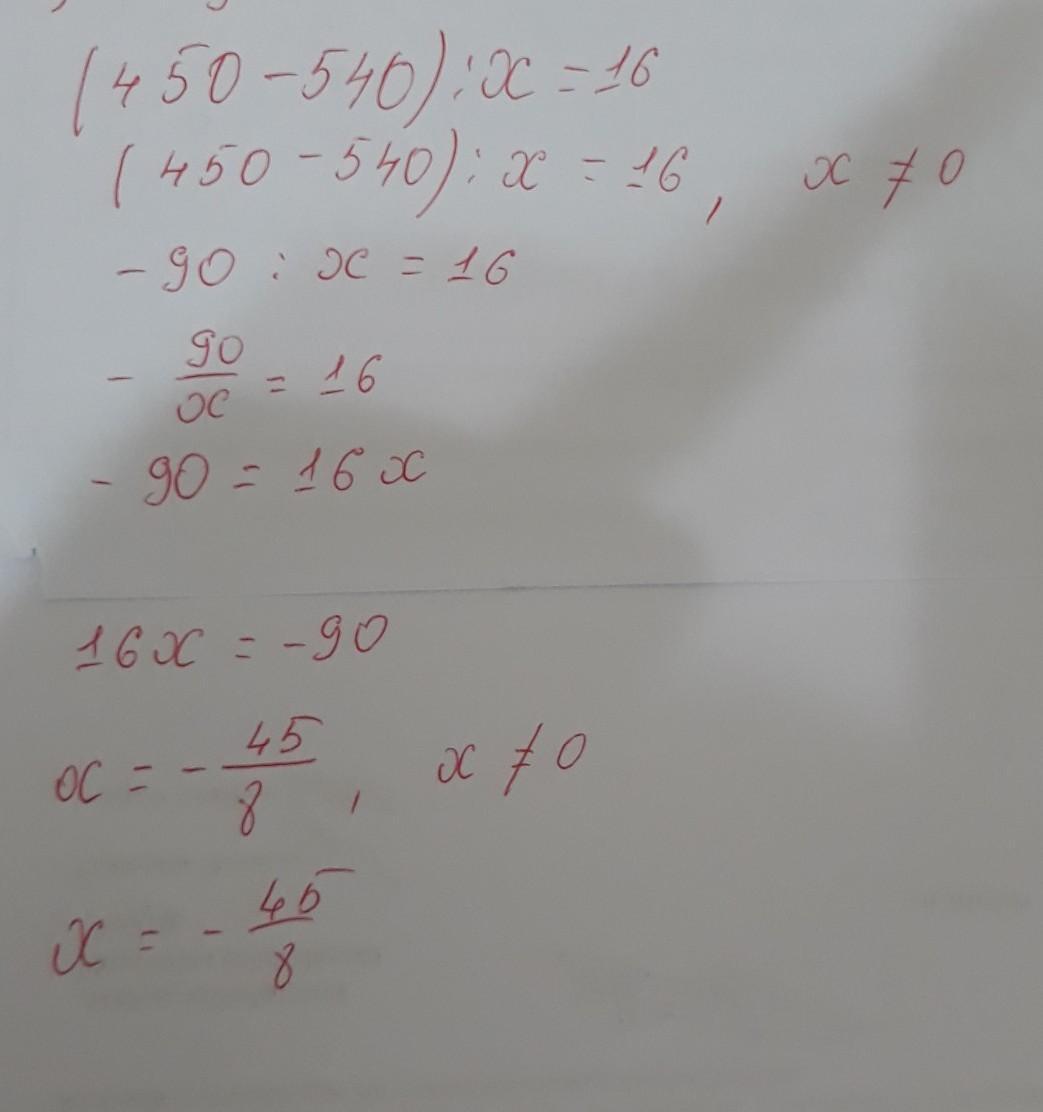 (450-540):x=16
(450-540):x=16, x≠0
-90:x=16
-90/x=16
-90=16x
16x=-90
x=-45/8, x≠0
x=-45/8